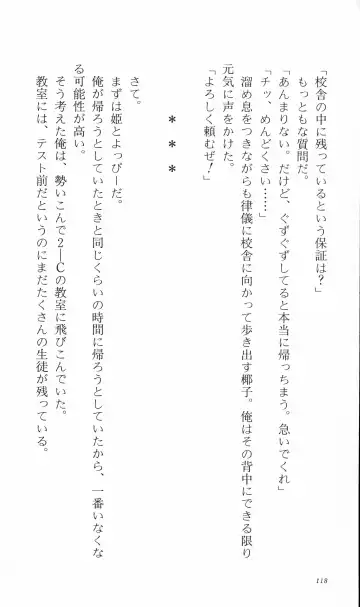 「校舎の中に残っているという保証は？」
もっともな質問だ。
「あんまりない。だけど、ぐずぐずしてると本当に帰っちまう。急いでくれ」
「チッ、めんどくさい……」
溜め息をつきながらも律儀に校舎に向かって歩き出す椰子。俺はその背中にできる限り
元気に声をかけた。
「よろしく頼むぜ！」
＊　＊　＊
さて。
まずは姫とよっぴーだ。
俺が帰ろうとしていたときと同じくらいの時間に帰ろうとしていたから、一番いなくな
る可能性が高い。
そう考えた俺は、勢いこんで２―Ｃの教室に飛びこんでいた。
教室には、テスト前だというのにまだたくさんの生徒が残っている。
118